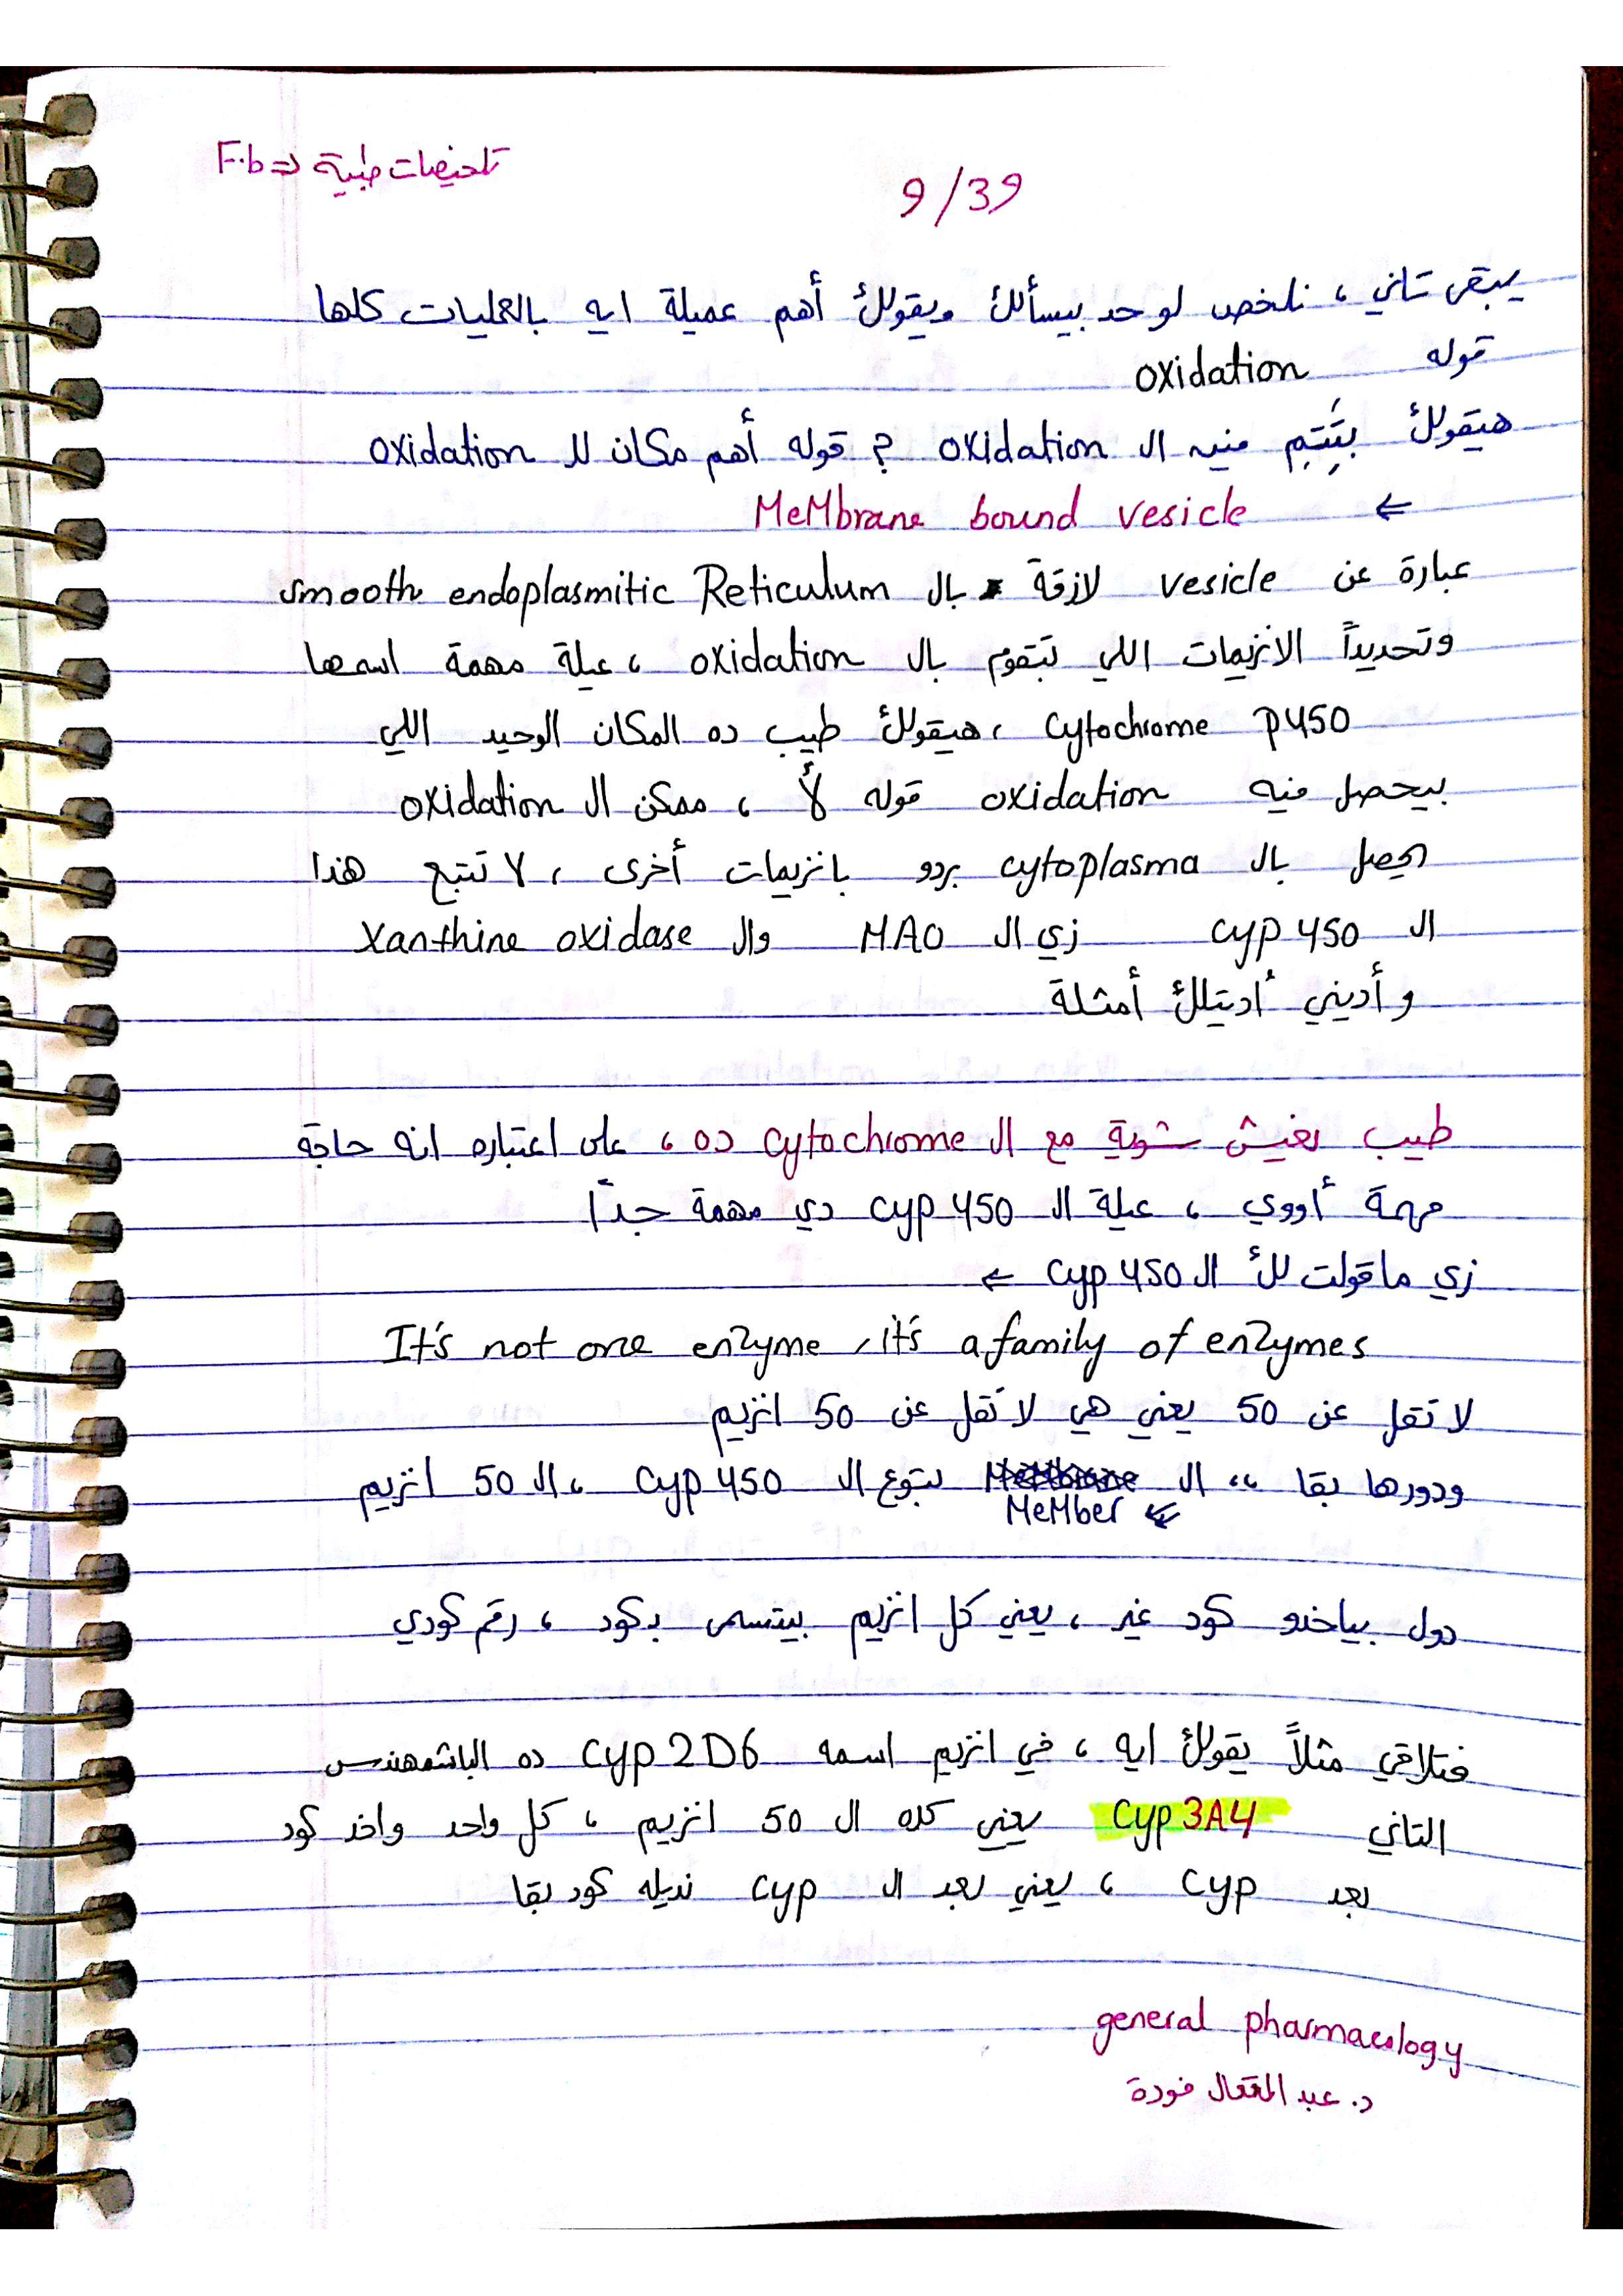 F.b => تلخيصات طبية
9/39
يبقى تاني ، نلخص لو حد بيسألك ويقولك أهم عميلة ايه بالعمليات كلها
قوله oxidation
هيقولك بتتم فيه ال oxidation ؟ قوله أهم مكان لل oxidation
← MeMbrane bound vesicle
عبارة عن vesicle لازقة بال smooth endoplasmitic Reticulum
وتحديداً الانزيمات اللي بتقوم بال oxidation ، عيلة مهمة اسمها
cytochrome P450 ، هيقولك طيب ده المكان الوحيد اللي
بيحصل فيه oxidation قوله لأ ، ممكن ال oxidation
يحصل بال cytoplasma بردو بانزيمات أخرى ، لا تتبع هذا
ال cyp 450 زي ال MAO وال Xanthine oxidase
وأديني أديتلك أمثلة
طيب نعيش شوية مع ال cytochrome ده ، على اعتباره انه حاجة
مهمة أووي ، عيلة ال cyp 450 دي مهمة جداً
زي ماقولت لك ال cyp 450 ←
It's not one enzyme, it's a family of enzymes
لا تقل عن 50 يعني هي لا تقل عن 50 انزيم
ودورها بقا ،، ال MeMbrane بتوع ال cyp 450 ، ال 50 انزيم
MeMber
دول بياخدو كود غير ، يعني كل انزيم بيتسمى بكود ، رقم كودي
فتلاقي مثلاً يقولك ايه ، في انزيم اسمه cyp 2D6 ده الباشمهندس
التاني cyp 3A4 يعني كده ال 50 انزيم ، كل واحد واخد كود
بعد cyp ، يعني بعد ال cyp نديله كود بقا
general pharmacology
د. عبد المتعال فودة